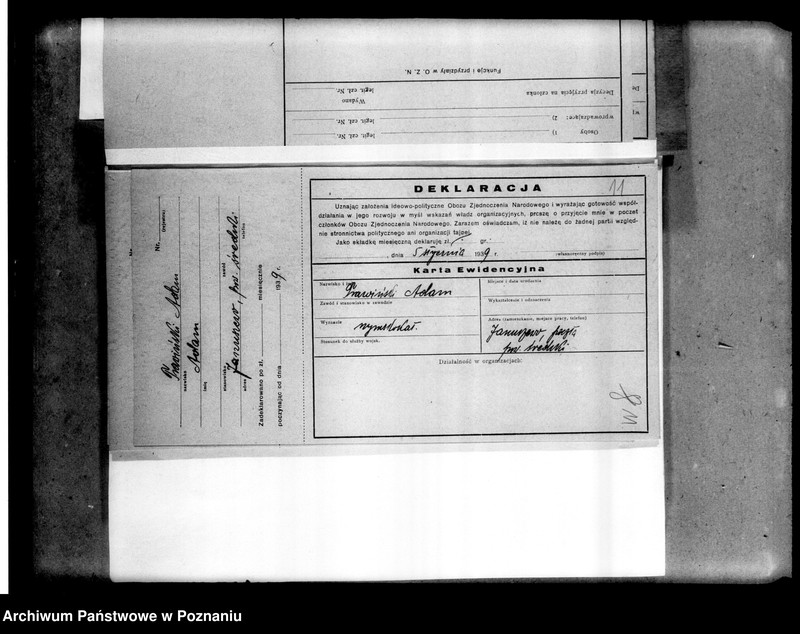 Funkcje i przydziały w O. Z. N.
Decyzja przyjęcia na członka
Wydano
legit. czł. Nr.
wprowadzające: 2)
legit. czł. Nr.
Osoby 1)
legit. czł. Nr.
Nr.
(rejestru)
Adam
nazwisko
Adam
imię
zawód
stanowisko
Januszewo, pow. średzki
adres
Zadeklarowano po zł.
miesięcznie
począwszy od dnia
1939 r.
DEKLARACJA
11
Uznając założenia ideowo-polityczne Obozu Zjednoczenia Narodowego i wyrażając gotowość współ-
działania w jego rozwoju w myśl wskazań władz organizacyjnych, proszę o przyjęcie mnie w poczet
członków Obozu Zjednoczenia Narodowego. Zarazem oświadczam, iż nie należę do żadnej partii względ-
nie stronnictwa politycznego ani organizacji tajnej.
Jako składkę miesięczną deklaruję zł. gr.
dnia 5 stycznia 1939 r.
(własnoręczny podpis)
Karta Ewidencyjna
Nazwisko i imię
Adam
Miejsce i data urodzenia
Zawód i stanowisko w zawodzie
Wykształcenie i odznaczenia
Wyznanie
rzymskokat.
Adres (zamieszkanie, miejsce pracy, telefon)
Januszewo, poczta
pow. średzki
Stosunek do służby wojsk.
Działalność w organizacjach:
W 8
Archiwum Państwowe w Poznaniu